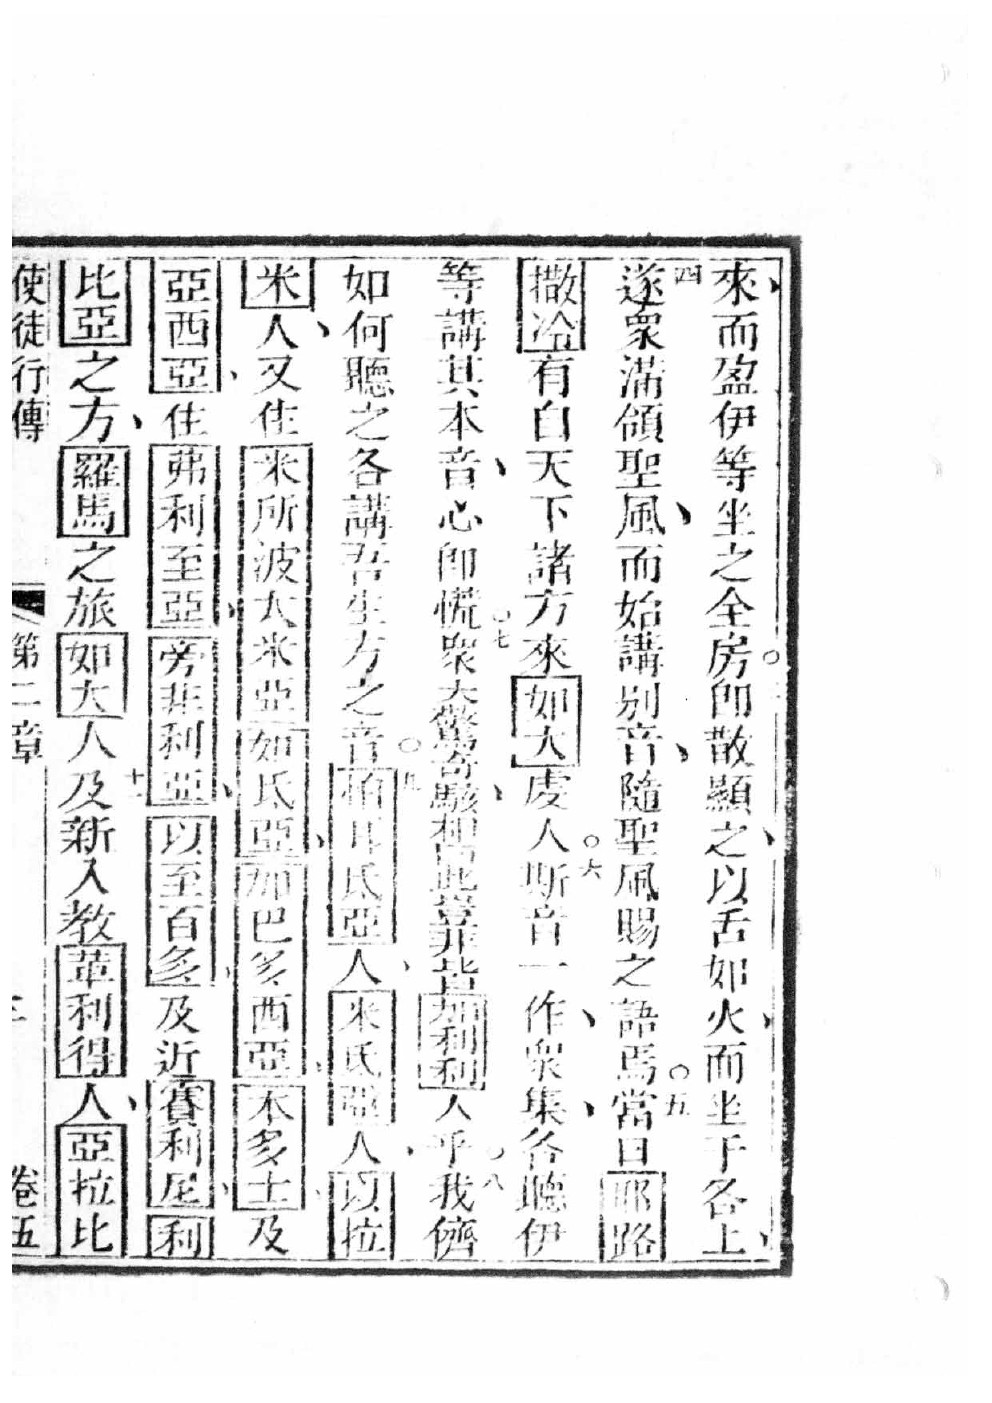 來而盈伊等坐之全房〇即散顯之以舌如火而坐于各上
四遂衆滿領聖風而始講別音隨聖風賜之語焉〇五當日耶路
撒冷有自天下諸方來如大虔人〇六斯音一作衆集各聽伊
等講其本音心即慌〇七衆大驚奇駭相謂此豈非皆加利利人乎〇八我儕
如何聽之各講吾生方之音〇九柏耳氐亞人米氐亞人以拉
米人又住米所波大米亞如氐亞加巴多西亞本多士及
亞西亞住弗利至亞旁非利亞以至百多及近賽利尼利
比亞之方羅馬之旅如大人及新入教十一革利得人亞拉比
使徒行傳 第二章 三 卷五